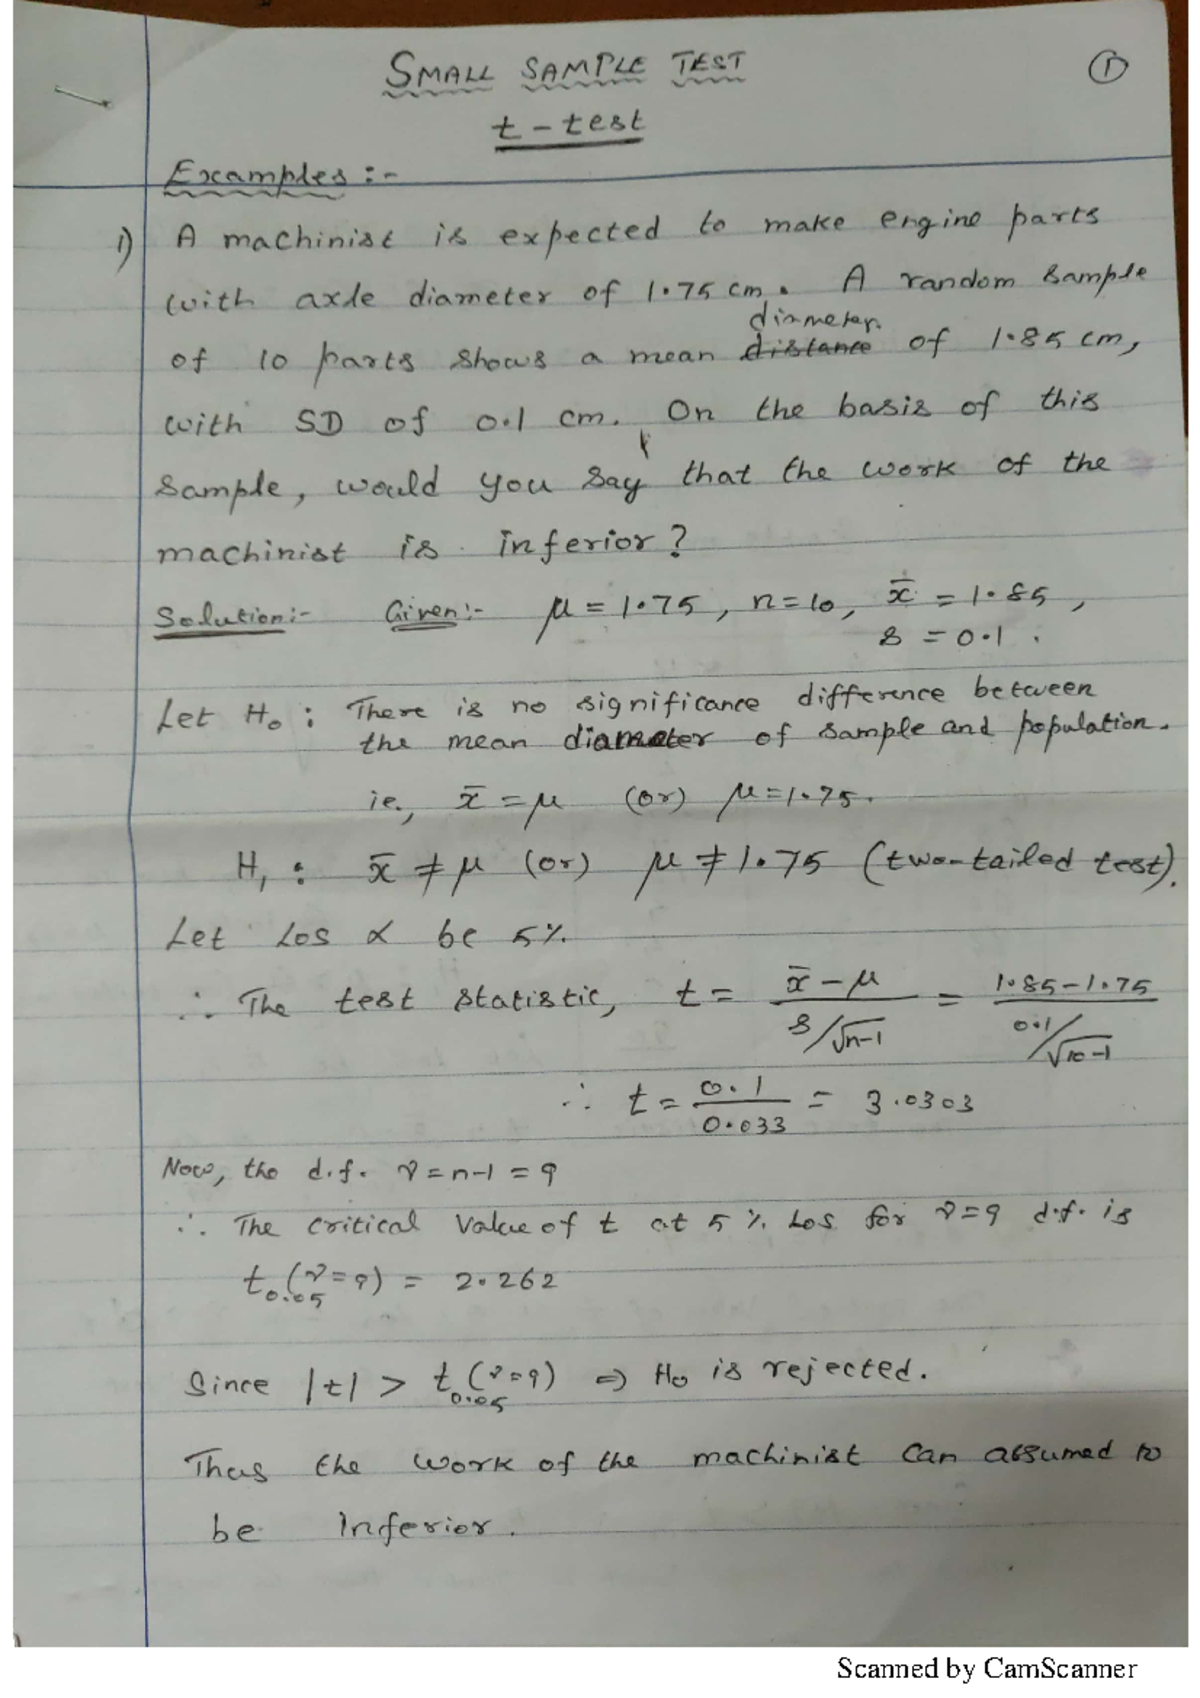 SMALL SAMPLE TEST
1
t-test
Examples :-
1) A machinist is expected to make engine parts
with axle diameter of 1.75 cm. A random sample
diameter
of 10 parts shows a mean distance of 1.85 cm,
with SD of 0.1 cm. On the basis of this
sample, would you say that the work of the
machinist is inferior?
Solution:- Given:- μ = 1.75, n=10, x̄ = 1.85,
s = 0.1.
Let H₀ : There is no significance difference between
the mean diameter of sample and population.
ie., x̄ = μ (or) μ=1.75.
H₁ : x̄ ≠ μ (or) μ ≠ 1.75 (two-tailed test).
Let Los α be 5%.
∴ The test statistic, t = (x̄ - μ)/(s/√n-1) = (1.85-1.75)/(0.1/√10-1)
∴ t = 0.1/0.033 = 3.0303
Now, the d.f. ν = n-1 = 9
∴ The critical value of t at 5% Los for ν=9 d.f. is
t₀.₀₅(ν=9) = 2.262
Since |t| > t₀.₀₅(ν=9) ⇒ H₀ is rejected.
Thus the work of the machinist can assumed to
be Inferior.
Scanned by CamScanner